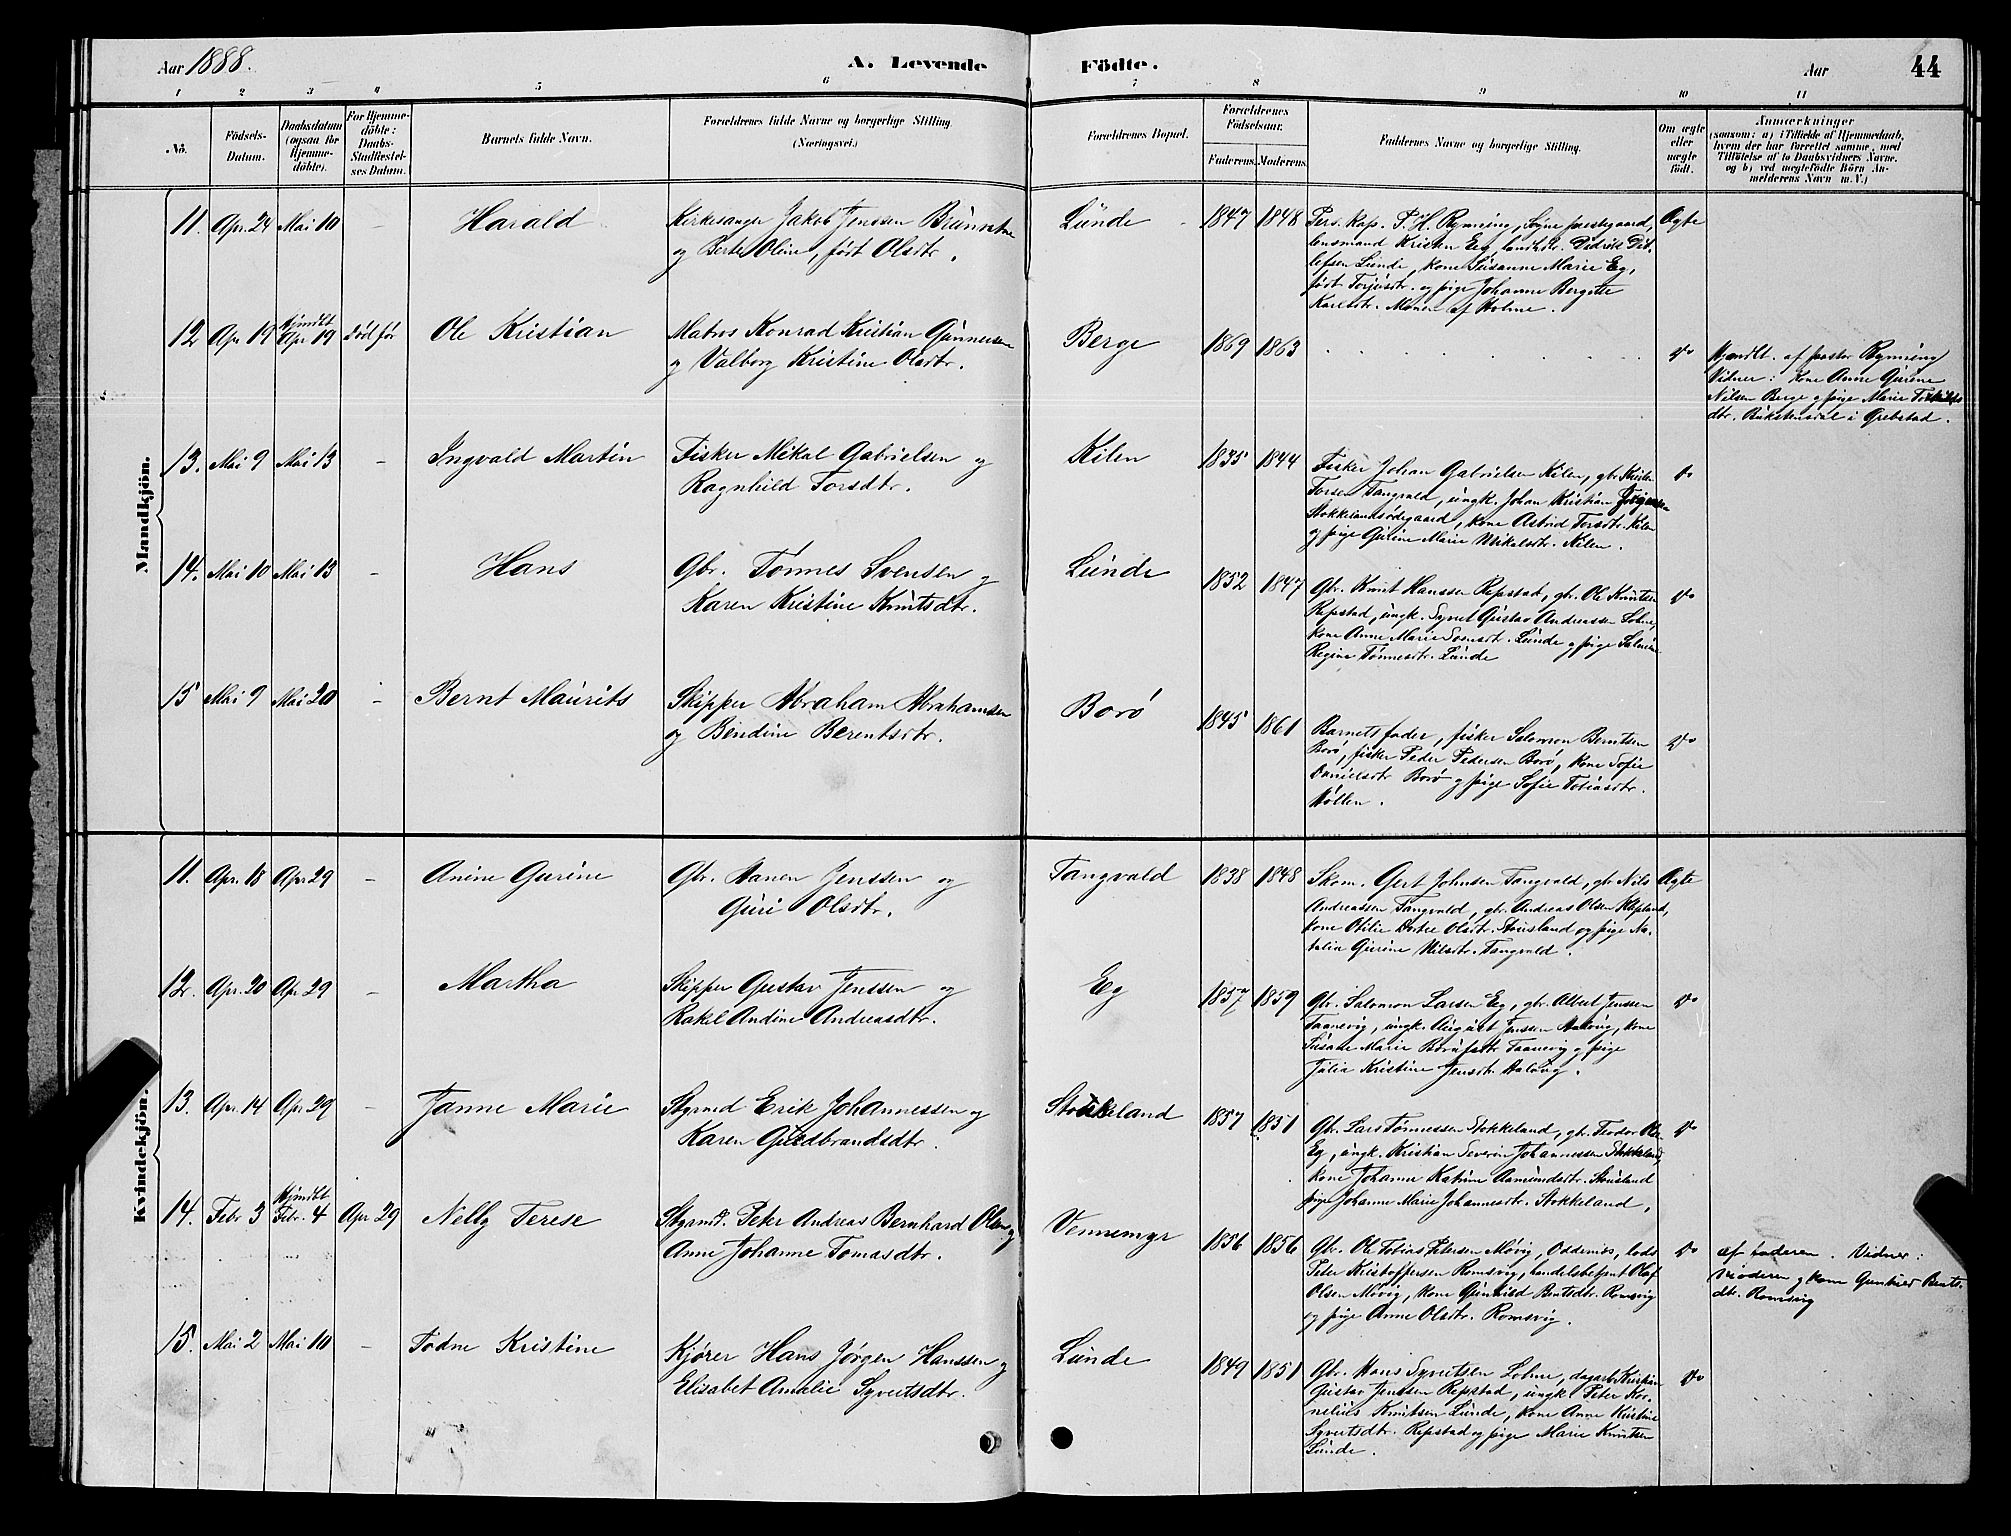 Aar 1888. A. Levende Födte. Aar 44
1 2 3 4 5 6 7 8 9 10 11
No.
Födsels-Datum.
Daabsdatum (ogsaa for Hjemmedöbte).
For Hjemmedöbte: Daabs-Stadfæstelses Datum.
Barnets fulde Navn.
Forældrenes fulde Navne og borgerlige Stilling (Næringsvei.)
Forældrenes Bopæl.
Forældrenes Födselsaar.
Faderens. Moderens.
Faddernes Navne og borgerlige Stilling.
Om ægte eller uægte födt.
Anmærkninger
(saasom: a) i Tilfælde af Hjemmedaab,
hvem der har forrettet samme, med
Tilföielse af to Daabsvidners Navne.
og b) ved uægtefödte Börn An-
melderens Navn m. V.)
Mandkjön.
11. Apr. 24 Mai 10 - Harald
Kirkesanger Jakob Jenssen
og Berte Oline, født Olsdtr.
Lunde 1847 1848
Pers. kap. P. H. Rynning, Sogneprestegaard,
lensmand Kristen Eg, Didrik Dit-
lefsen Lunde, kone Susanne Marie Eg,
født Torjusdtr. og pige Johanne Bergitte
Karlsdtr. Monen af Holme.
Ægte
12 Apr 19 Hjmdbt Apr 19 død før Ole Kristian
Matros Konrad Kristian Gunnersen
og Valborg Kristine Olsdtr.
Berge 1869 1863
do
Hjmdbt. af pastor Rynning
Vidner: Kone Anne Gurine
Nilsen Berge og pige Marie
dtr. i Grebstad.
13. Mai 9 Mai 13 - Ingvald Martin
Fisker Mikal Gabrielsen og
Ragnhild Torsdtr.
Kilen 1835 1844
Fisker Johan Gabrielsen Kilen, gbr.
Torsen Tangvald, ungk. Johan Kristian
Stokkelandsødegaard, kone Astrid Torsdtr. Kilen
og pige Gurine Marie Mikalsdtr. Kilen.
do
14. Mai 10 Mai 13 - Hans
Gbr. Tønnes Svensen og
Karen Kristine Knutsdtr.
Lunde 1852 1847
Gbr. Knut Hanssen Repstad, gbr. Ole Knutsen
Repstad, ungk. Syvert Gustav Andreassen Lohne,
kone Anne Marie Lunde og pige
Regine Tønnesdtr. Lunde
do
15 Mai 9 Mai 20 - Bernt Maurits
Skipper Abraham Abrahamsen
og Bendine Berentsdtr.
Borø 1845 1861
Barnets fader, fisker Salomon Berntsen
Borø, fisker Peder Pedersen Borø, kone Sofie
Danielsdtr. Borø og pige Sofie Tobiasdtr.
Høllen.
do
Kvindekjön.
11. Apr. 18 Apr 29 - Anine Gurine
Gbr. Hanen Jenssen og
Guri Olsdtr.
Tangvald 1838 1848
Skom. Gert Johnsen Tangvald, gbr. Nils
Andreassen Tangvald, gbr. Andreas Olsen Klepland,
kone Otilie Dortee Olsdtr. Stousland og pige Na-
talia Gurine Nilsdtr. Tangvald.
Ægte
12. Apr. 20 Apr 29 - Martha
Skipper Gustav Jenssen og
Rakel Andine Andreasdtr.
Eg 1857 1859
Gbr. Salomon Larsen Eg, gbr. Albert Jenssen
Taanevig, ungk. August Jenssen Aalevig, kone
Susane Marie Taanevig og pige
Julia Kristine Jensdtr. Aalevig.
do
13. Apr. 14 Apr 29 - Janne Marie
Styrmd Erik Johannessen og
Karen Gudbrandsdtr.
Stokkeland 1857 1851
Gbr. Lars Tønnessen Stokkeland, gbr. Teodor Olsen
Eg, ungk. Kristian Severin Johannessen Stokkeland,
kone Johanne Katrine Aanundsdtr. Stousland
pige Johanne Marie Johannesdtr. Stokkeland.
do
14. Febr 3 Hjmdbt Febr. 4 Apr 29 Nelly Terese
Styrmd. Peter Andreas Bernhard Olsen og
Anne Johanne Tomasdtr.
Vennemyr 1856 1856
Gbr. Ole Tobias Petersen Møvig, Oddernes, lods
Peter Kristoffersen Romsvig, handelsbetjent Olaf
Olsen Møvig, kone Gunhild Bentsdtr. Romsvig
og pige Anne Olsdtr. Romsvig.
do
af faderen. Vidner:
Moderen og kone Gunhild Bents-
dtr. Romsvig
15. Mai 2 Mai 10 - Todne Kristine
Kjører Hans Jørgen Hanssen og
Elisabet Amalie Syvertsdtr.
Lunde 1849 1851
Gbr. Hans Syvertsen Lohne, dagarb. Kristian
Gustav Jenssen Repstad, ungk. Peter Kor-
nelius Knutsen Lunde, kone Anne Kristine
Syvertsdtr. Repstad og pige Marie Knutsen
Lunde.
do